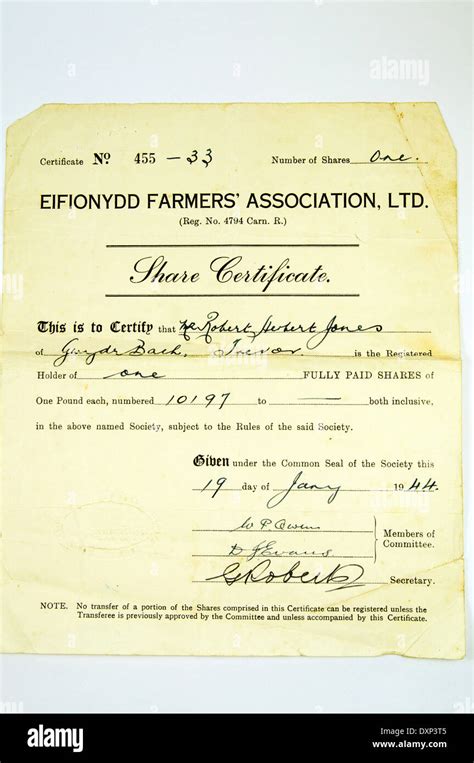 Certificate No 455 - 33 Number of Shares One.
EIFIONYDD FARMERS' ASSOCIATION, LTD.
(Reg. No. 4794 Carn. R.)
Share Certificate.
This is to Certify that Mr Robert Hubert Jones
of Gwydr Bach, Trevor. is the Registered
Holder of one FULLY PAID SHARES of
One Pound each, numbered 10197 to — both inclusive,
in the above named Society, subject to the Rules of the said Society.
Given under the Common Seal of the Society this
19 day of Jany 1944.
W P Owen
D J Evans
Members of
Committee.
G Roberts Secretary.
NOTE. No transfer of a portion of the Shares comprised in this Certificate can be registered unless the
Transferee is previously approved by the Committee and unless accompanied by this Certificate.
alamy
Image ID: DXP3T5
www.alamy.com